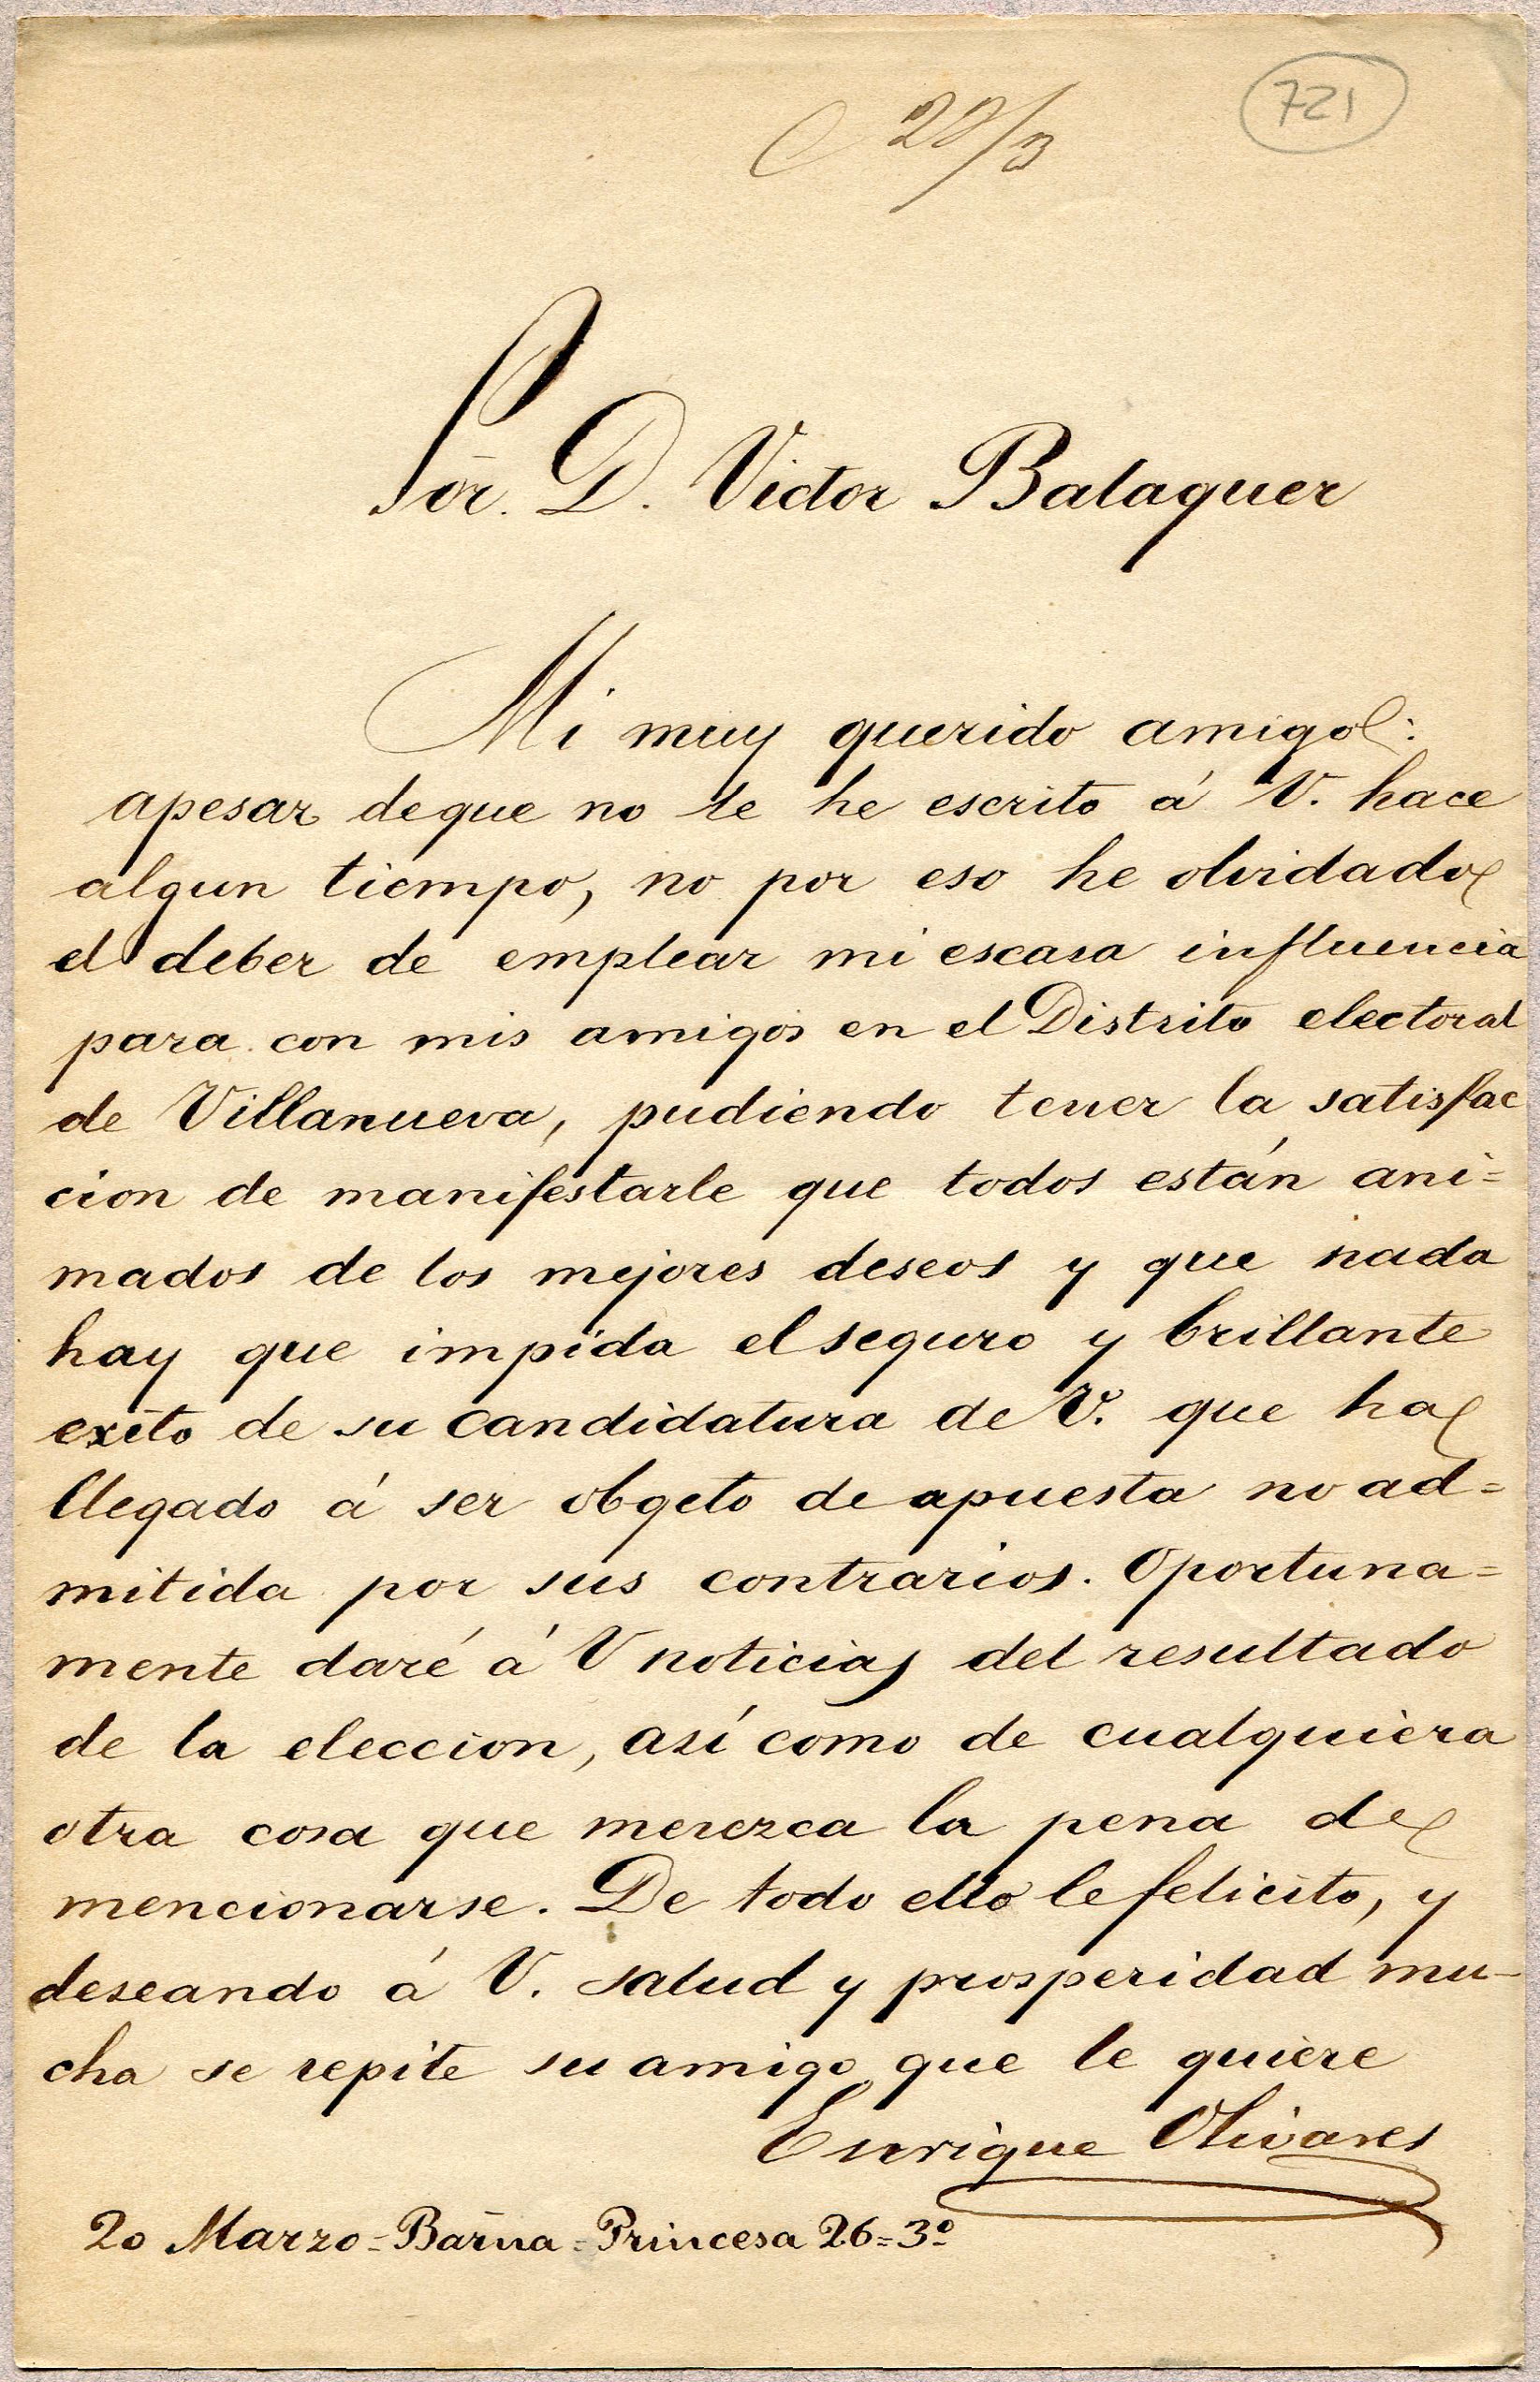 721
C 28/3
Sor. D. Victor Balaguer
Mi muy querido amigo:
apesar deque no le he escrito á V. hace
algun tiempo, no por eso he olvidado
el deber de emplear mi escasa influencia
para con mis amigos en el Distrito electoral
de Villanueva, pudiendo tener la satisfac
cion de manifestarle que todos están ani=
mados de los mejores deseos y que nada
hay que impida el seguro y brillante
exito de su candidatura de V. que ha
llegado á ser obgeto de apuesta no ad=
mitida por sus contrarios. Oportuna=
mente daré á V noticias del resultado
de la eleccion, así como de cualquiera
otra cosa que merezca la pena de
mencionarse. De todo ello le felicito, y
deseando á V. salud y prosperidad mu-
cha se repite su amigo que le quiere
Enrique Olivares
20 Marzo=Barña=Princesa 26=3º